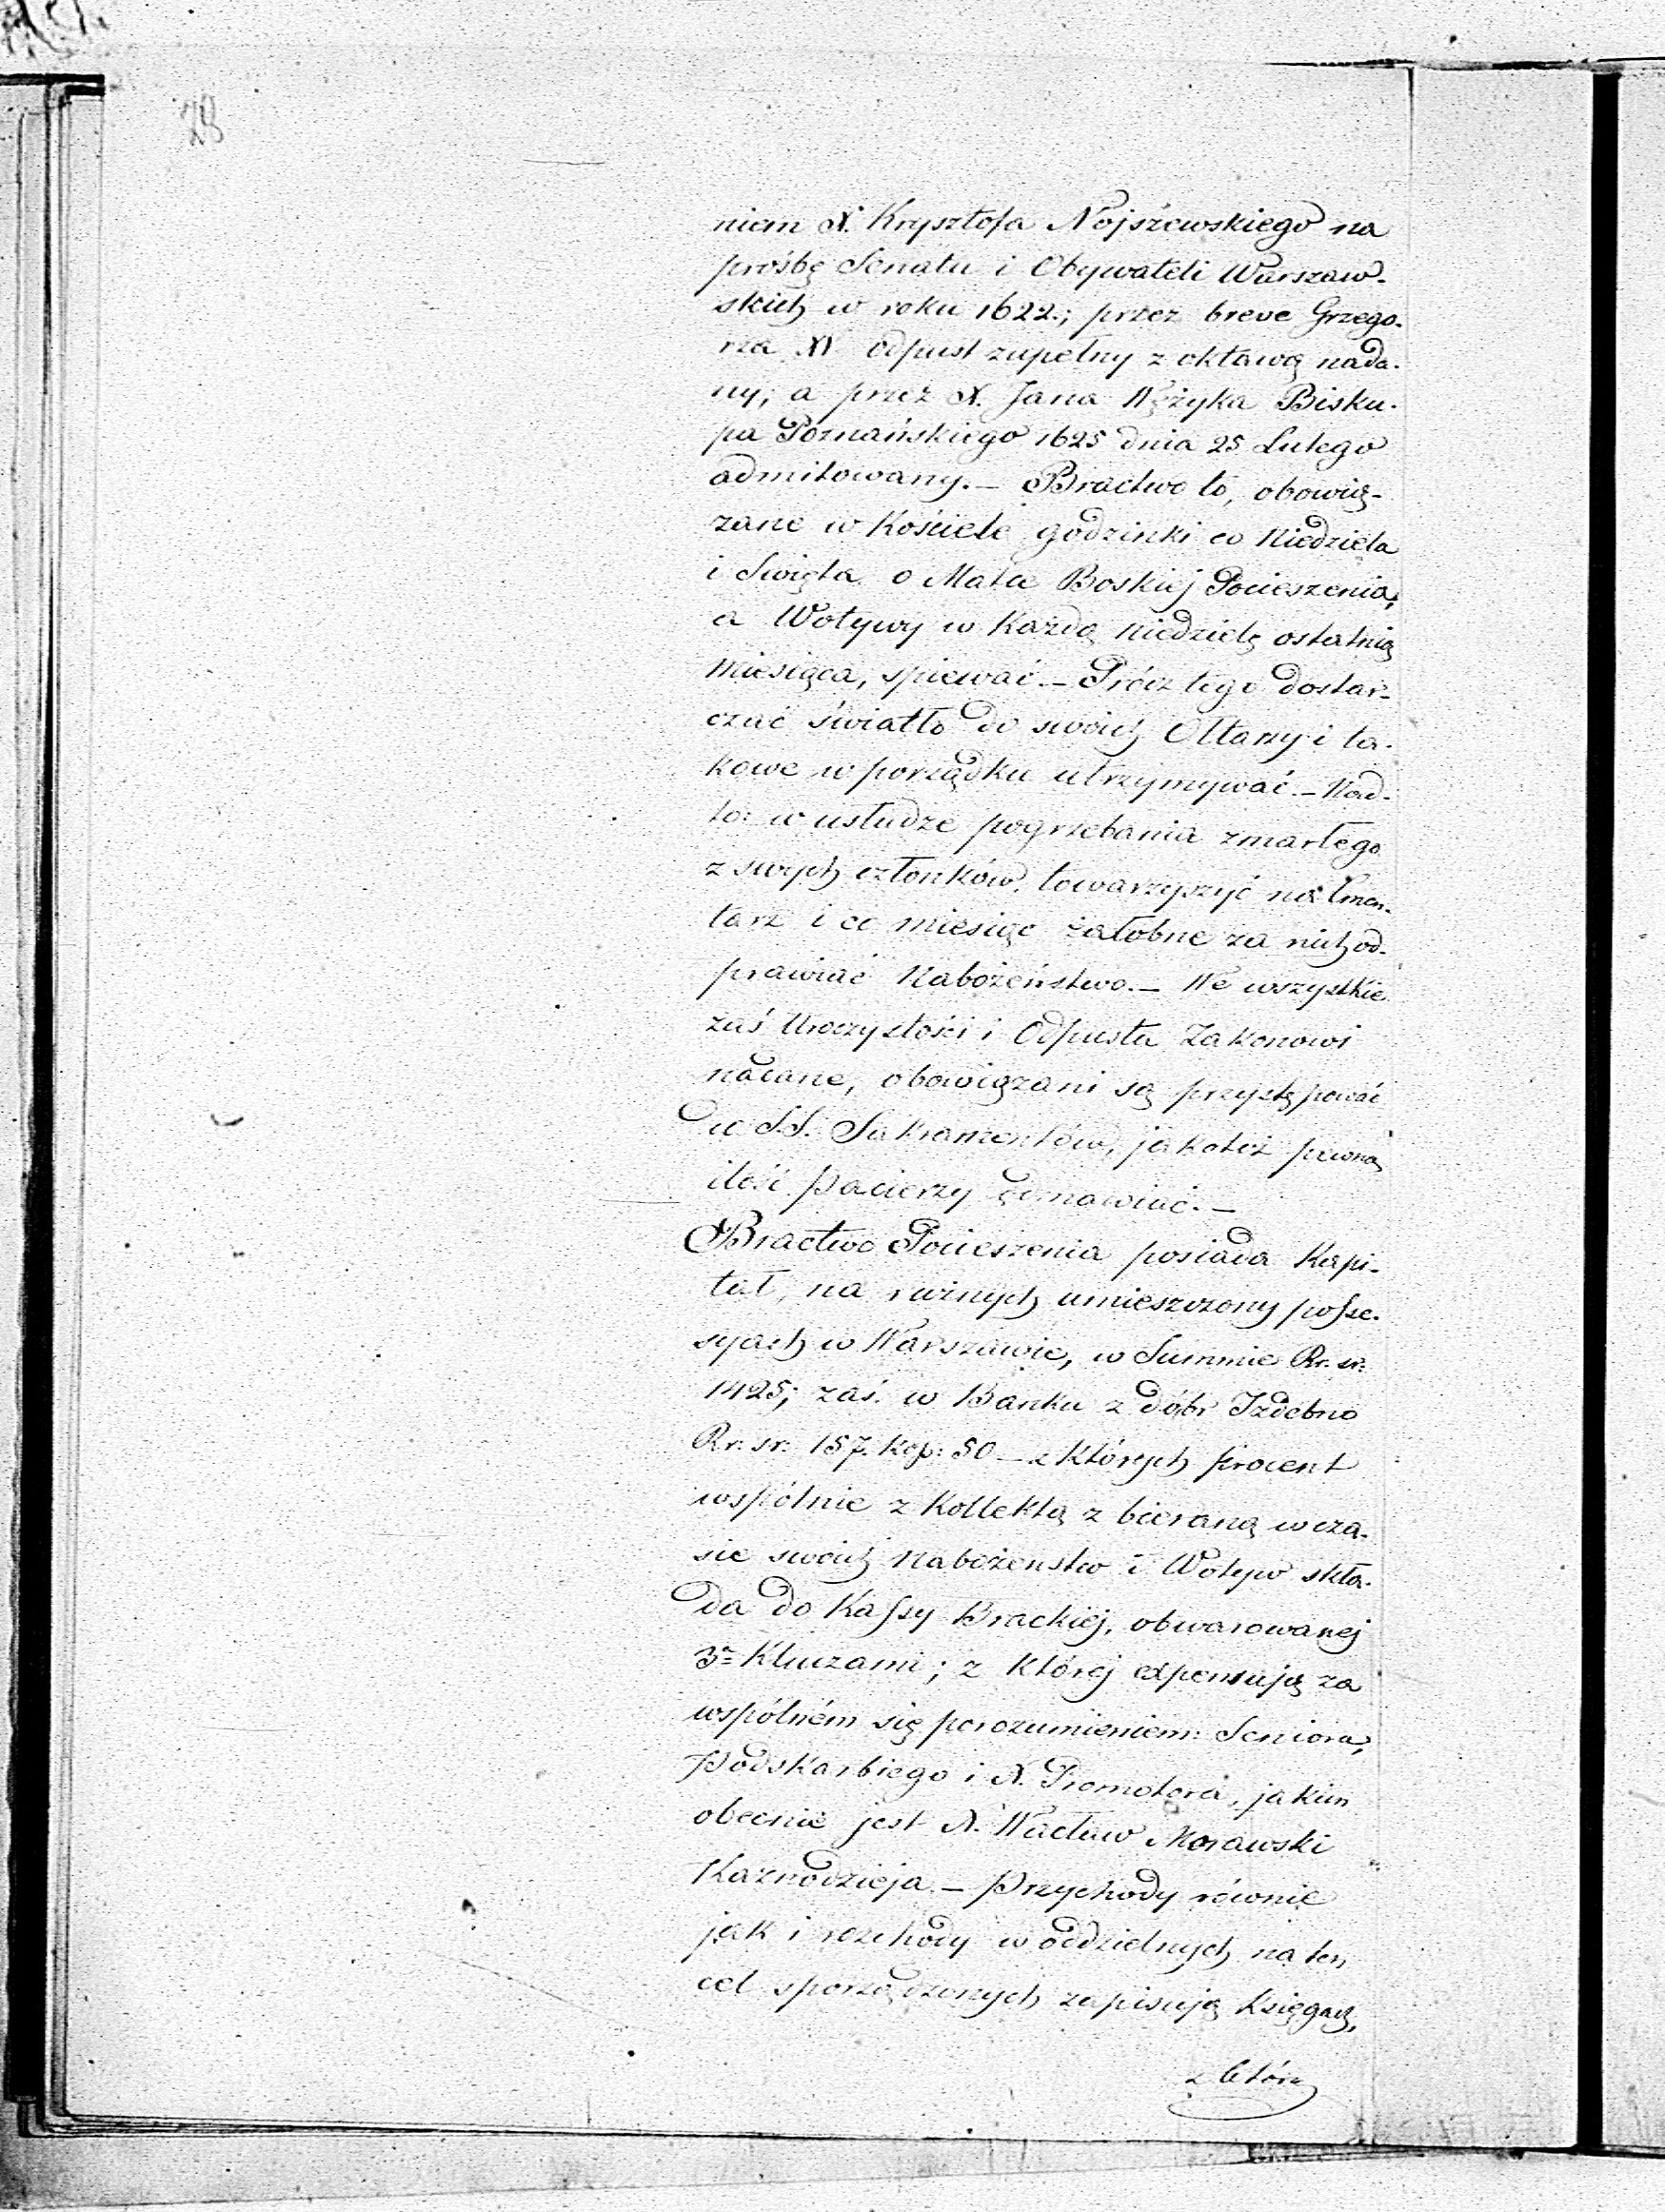 28
niem X. Krysztofa Nojszewskiego na
prośbę Senatu i Obywateli Warszaw-
skich w roku 1622.; przez breve Grzego-
rza XV odpust zupełny z oktawą nada-
ny; a przez X. Jana Wężyka Bisku-
pa Poznańskiego 1625 dnia 25 Lutego
admitowany. – Bractwo to, obowią-
zane w Kościele godzinki co Niedziela
i Święta o Matce Boskiej Pocieszenia,
a Wotywy w Każdą Niedzielę ostatnią
Miesiąca, śpiewać. – Prócz tego dostar-
czać światło do swoich Ołtarzy i ta-
kowe w porządku utrzymywać. – Nad-
to: w usłudze pogrzebania zmarłego
z swych członków, towarzyszyć na Cmen-
tarz i co miesiąc żałobne za nich od-
prawiać Nabożeństwo. – We wszystkie
zaś Uroczystości i Odpusta Zakonowi
nadane, obowiązani są przystępować
do SS. Sakramentów, jakoteż pewną
ilość pacierzy odmawiać. –
Bractwo Pocieszenia posiada Kapi-
tał, na różnych umieszczony posse-
syach w Warszawie, w Summie Rr. sr:
1425; zaś w Banku z dóbr Izdebno
Rr: sr: 157. kop: 50 – z Których procent
wspólnie z Kollektą z bieraną w cza-
sie swoich Nabożeństw i Wotyw skła-
da do Kassy Brackiej, obwarowanej
3ma Kluczami; z Której expensują za
wspólném się porozumieniem: Seniora,
Podskarbiego i X. Promotora, jakim
obecnie jest X. Wacław Morawski
Kaznodzieja. – Przychody równie
jak i rozchody w oddzielnych na ten
cel sporządzonych zapisują Księgach,
z Któr